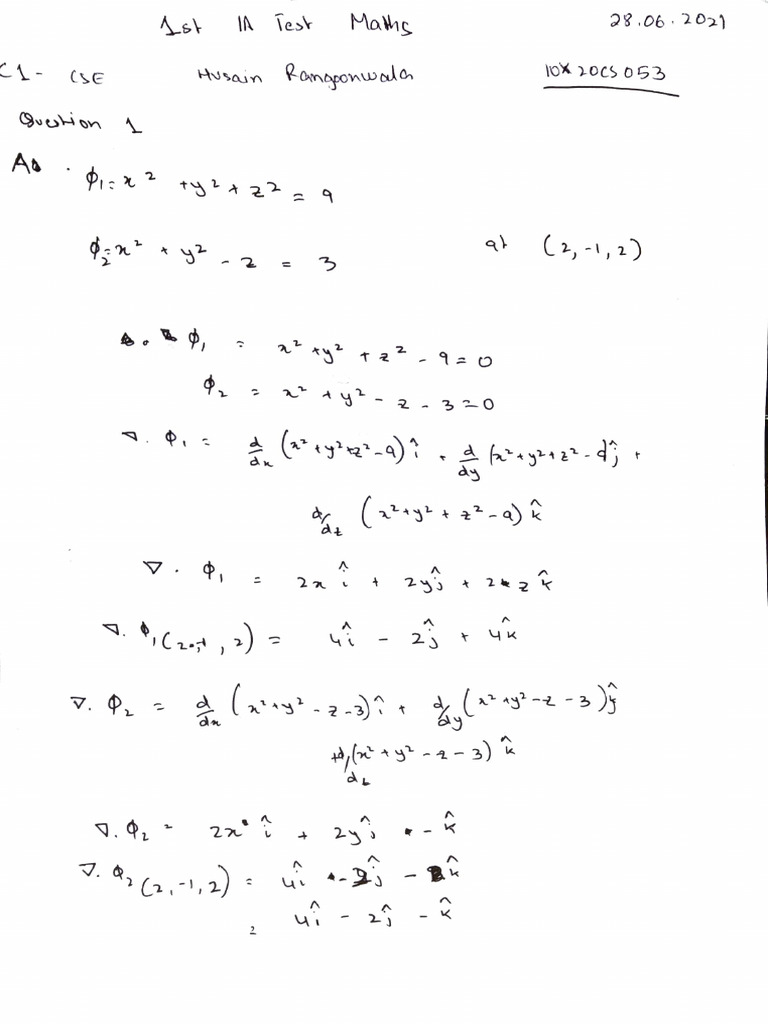 1st IA Test Maths 28.06.2021
C1- CSE Husain Rangoonwala 10X20CS053
Question 1
A. φ₁ = x² + y² + z² = 9
φ₂ = x² + y² - z = 3 at (2, -1, 2)
φ₁ = x² + y² + z² - 9 = 0
φ₂ = x² + y² - z - 3 = 0
∇. φ₁ = d/dx (x² + y² + z² - 9) î + d/dy (x² + y² + z² - 9) ĵ +
d/dz (x² + y² + z² - 9) k̂
∇. φ₁ = 2x î + 2y ĵ + 2z k̂
∇. φ₁ (2, -1, 2) = 4î - 2ĵ + 4k̂
∇. φ₂ = d/dx (x² + y² - z - 3) î + d/dy (x² + y² - z - 3) ĵ
+ d/dz (x² + y² - z - 3) k̂
∇. φ₂ = 2x î + 2y ĵ - k̂
∇. φ₂ (2, -1, 2) = 4î - 2ĵ - k̂
= 4î - 2ĵ - k̂